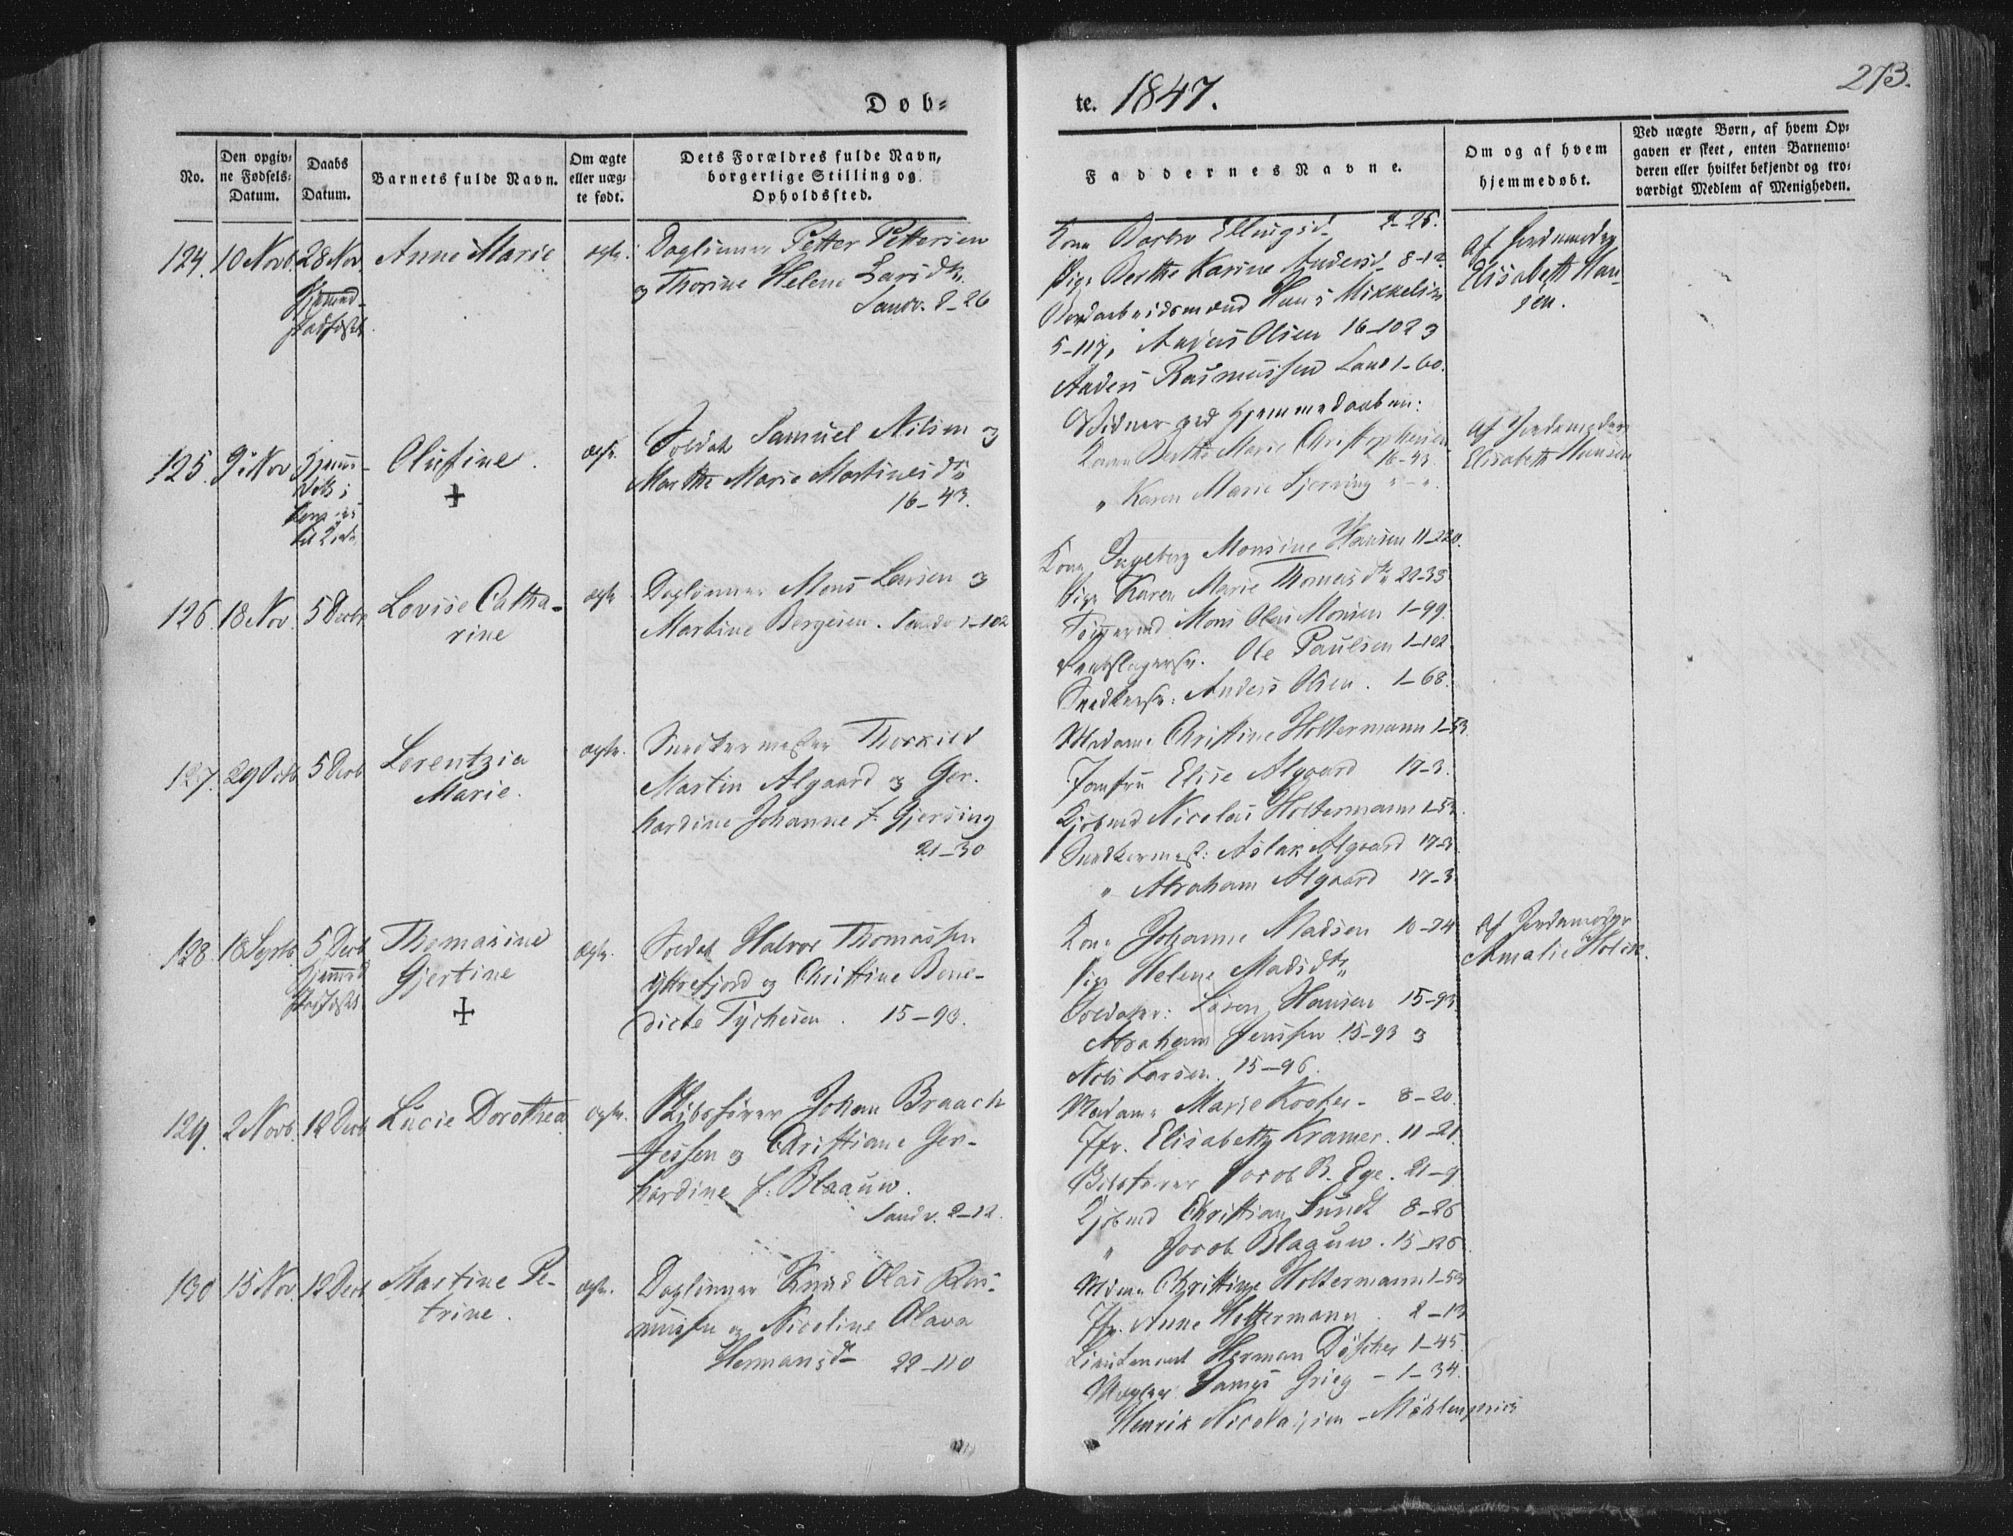 Døb=
te. 1847.
273.
No.
Den opgiv=
ne Fødsels=
Datum.
Daabs
Datum.
Barnets fulde Navn.
Om ægte
eller uæg=
te født.
Dets Forældres fulde Navn,
borgerlige Stilling og
Opholdssted.
Faddernes Navne.
Om og af hvem
hjemmedøbt.
Ved uægte Børn, af hvem Op=
gaven er skeet, enten Barnemo=
deren eller hvilket bekjendt og tro=
værdigt Medlem af Menigheden.
124. 10 Novb. 28 Nov. Anne Marie ægte. Daglønner Petter Pettersen
og Thorine Helene Larsdtr.
Sandv. 2-26
Kone Barbro Ellingsd. 2-25.
Pige Berthe Karine Andersd. 8-12.
Hans Mikkelsen
5-117, Anders Olsen 16-102 og
Anders Rasmussen Land 1-60.
af Jordemoder
Elisabeth Han-
sen.
125. 9 Nov. Hjemme-
døbt
Olufine. ægte. Soldat Samuel Nilsen og
Marthe Marie Martinesdtr.
16-43.
Vidner ved Hjemmedaaben:
Kone Berthe Marie Christophersen
16-43.
" Karen Marie Gjersing " - ".
af Jordemoder
Elisabeth Hansen
126. 18 Nov. 5 Decbr. Lovise Catha-
rine
ægte Daglønner Mons Larsen og
Martine Bergesen. Sandv. 1-102
Kone Ingeborg Monsine Hansen 11-220.
Pige Karen Marie Thomasdtr. 22-33.
Mons Olai Monsen 1-99.
Ole Paulsen 1-102
Anders Olsen. 1-68.
127. 29 Octb. 5 Decb. Lorentzia
Marie.
ægte. Snedkermester Thorkild
Martin Algaard og Ger-
hardine Johanne f. Gjersing
21-30
Madame Christine Holtermann 1-53.
Jomfru Elise Algaard 17-3.
Kjøbmd Nicolai Holtermann 1-53.
Snedkermest: Aslak Algaard 17-3
" Abraham Algaard 17-3.
128. 18 Septb. 5 Decb. Thomasine
Gjertine
ægte. Soldat Halvor Thomassen
Yttrefjord og Christine Bene-
dicte Tychesen. 15-93.
Kone Johanne Madsen 10-24
Pige Helene Madsdtr.
Soldater: Søren Hansen 15-93.
Abraham Jenssen 15-93 og
Nils Larsen. 15-96.
af Jordemoder
Amalie Holck.
129. 2 Novb. 12 Decb. Lucie Dorothea ægte. Skibsfører Johan Braach
Jessen og Christiane Ger-
hardine f. Blaauw.
Sandv. 2-12.
Madame Marie Kooter - 8-20.
Jfr. Elisabeth Kramer. 11-21.
Skibsfører Jacob B. Ege. 21-9
Kjøbmd Christian Sundt 8-26
" Jacob Blaauw. 15-126
130 15 Nov. 12 Decb. Martine Pe-
trine.
ægte. Daglønner Knud Olai Ras-
mussen og Nicoline Olava
Hermansd. 22-110
Mdme Christine Holtermann 1-53
Jfr. Anne Holtermann. 2-13
Lieutenant Herman Døscher 1-45.
Mægler James Grieg - 1-34.
Henrik Nicolaysen - Møhlenpriis